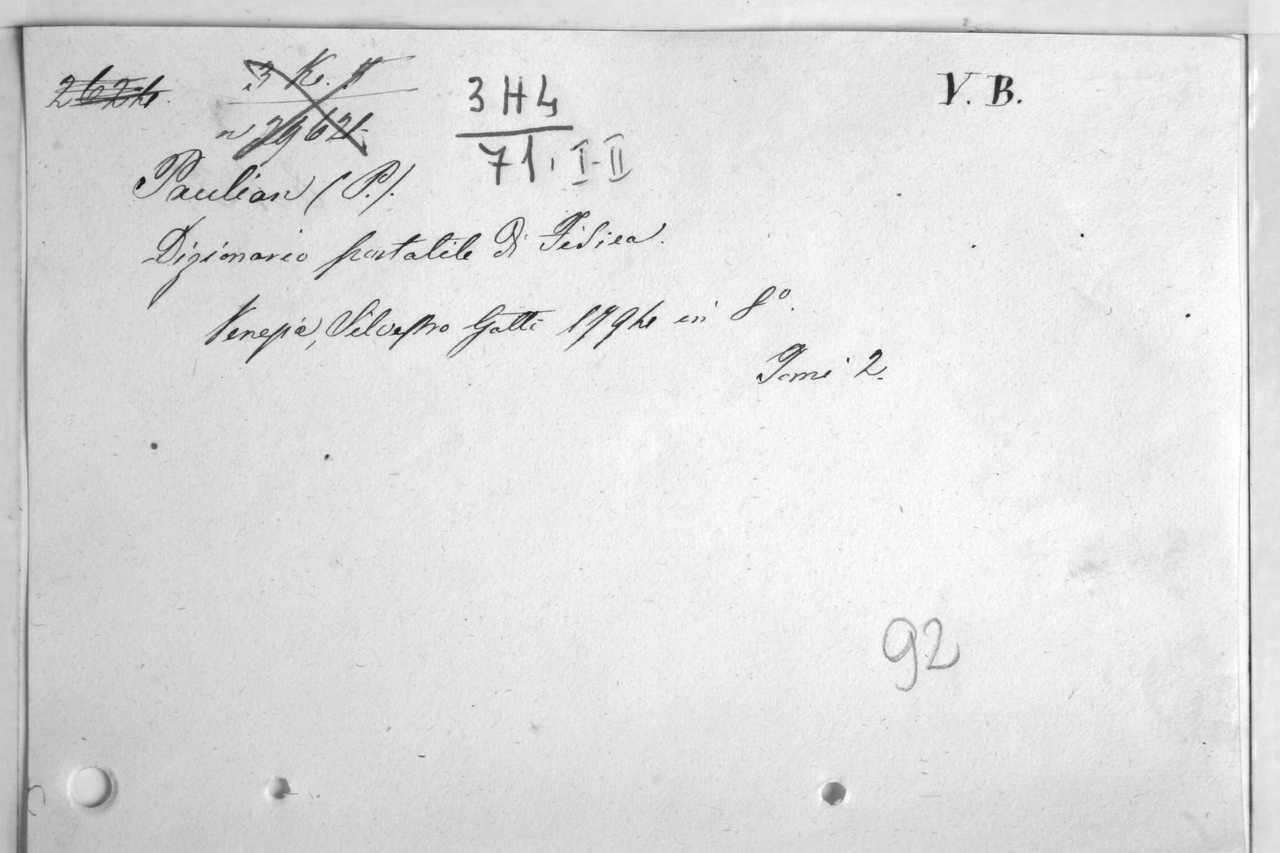 3 H 4
V. B.
71. I-II
Paulian (P.).
Dizionario portatile di Fisica.
Venezia, Silvestro Gatti 1794 in 8°.
Tomi 2.
92